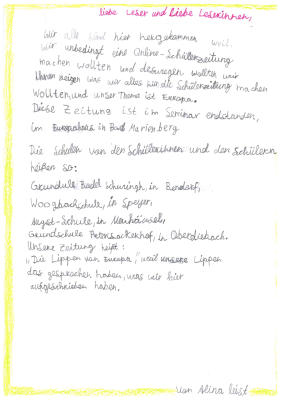 Liebe Leser und Liebe Leserinnen,
Wir alle sind hier hergekommen weil
wir unbedingt eine Online-Schülerzeitung
machen wollten und deswegen wollten wir
zeigen was wir alles für die Schülerzeitung machen
wollten und unser Thema ist Europa.
Diese Zeitung ist im Seminar endstanden,
im Europahaus in Bad Marienberg
Die Schulen von den Schülerinnen und den Schülern
heißen so:
in Bendorf,
Woogbachschule, in Speyer,
August-Schule, in
Grundschule in
Unsere Zeitung heißt:
"Die Lippen von Europa", weil unsere Lippen
das gesprochen haben, was wir hier
aufgeschrieben haben.
von Alina